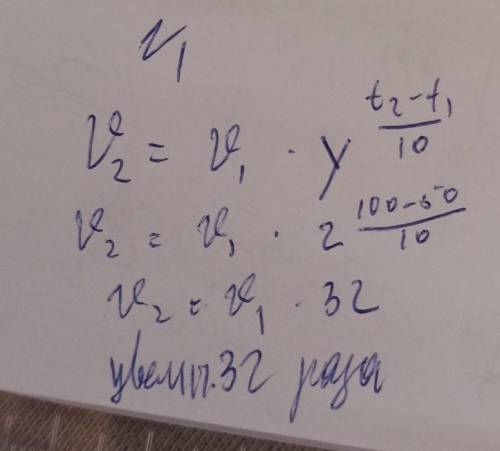 N1
V₂ = V₁ · γ^((t₂-t₁)/10)
V₂ = V₁ · 2^((100-50)/10)
V₂ = V₁ · 32
увелич. 32 раза